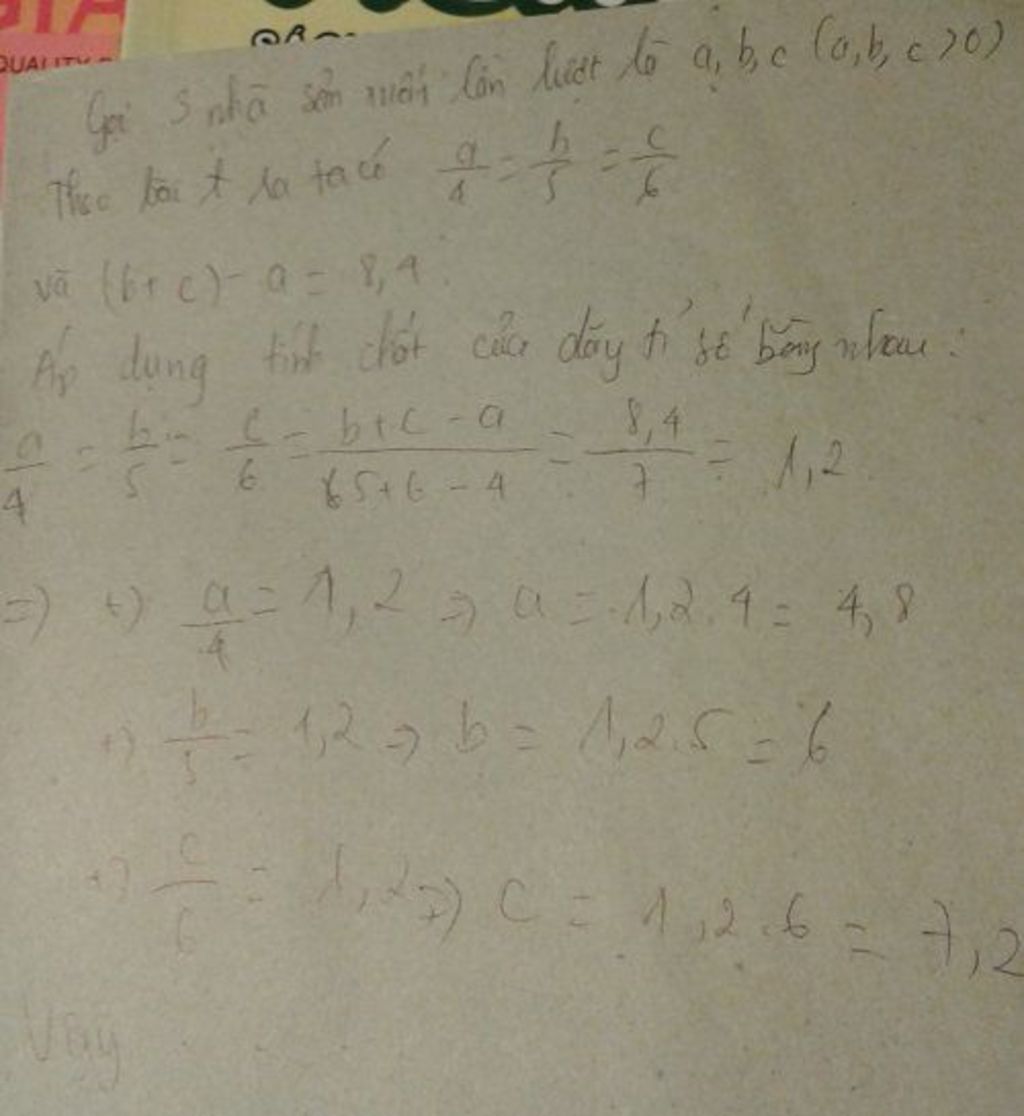 QUALITY
Gọi 3 nhà sản xuất lần lượt là a, b, c (a, b, c > 0)
Theo bài ra ta có a/4 = b/5 = c/6
và (b + c) - a = 8,4
Áp dụng tính chất của dãy tỉ số bằng nhau:
a/4 = b/5 = c/6 = b + c - a / 5 + 6 - 4 = 8,4/7 = 1,2
=> +) a/4 = 1,2 => a = 1,2 . 4 = 4,8
+) b/5 = 1,2 => b = 1,2 . 5 = 6
+) c/6 = 1,2 => c = 1,2 . 6 = 7,2
Vậy